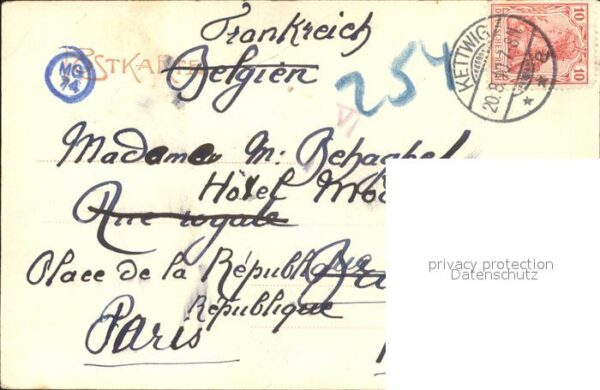 Frankreich
POSTKARTE
Belgien
MG
74
254
KETTWIG
20.8.
10
10
Madame M. Behaghel
Hôtel
Rue royale
Place de la République
République
Paris
privacy protection
Datenschutz